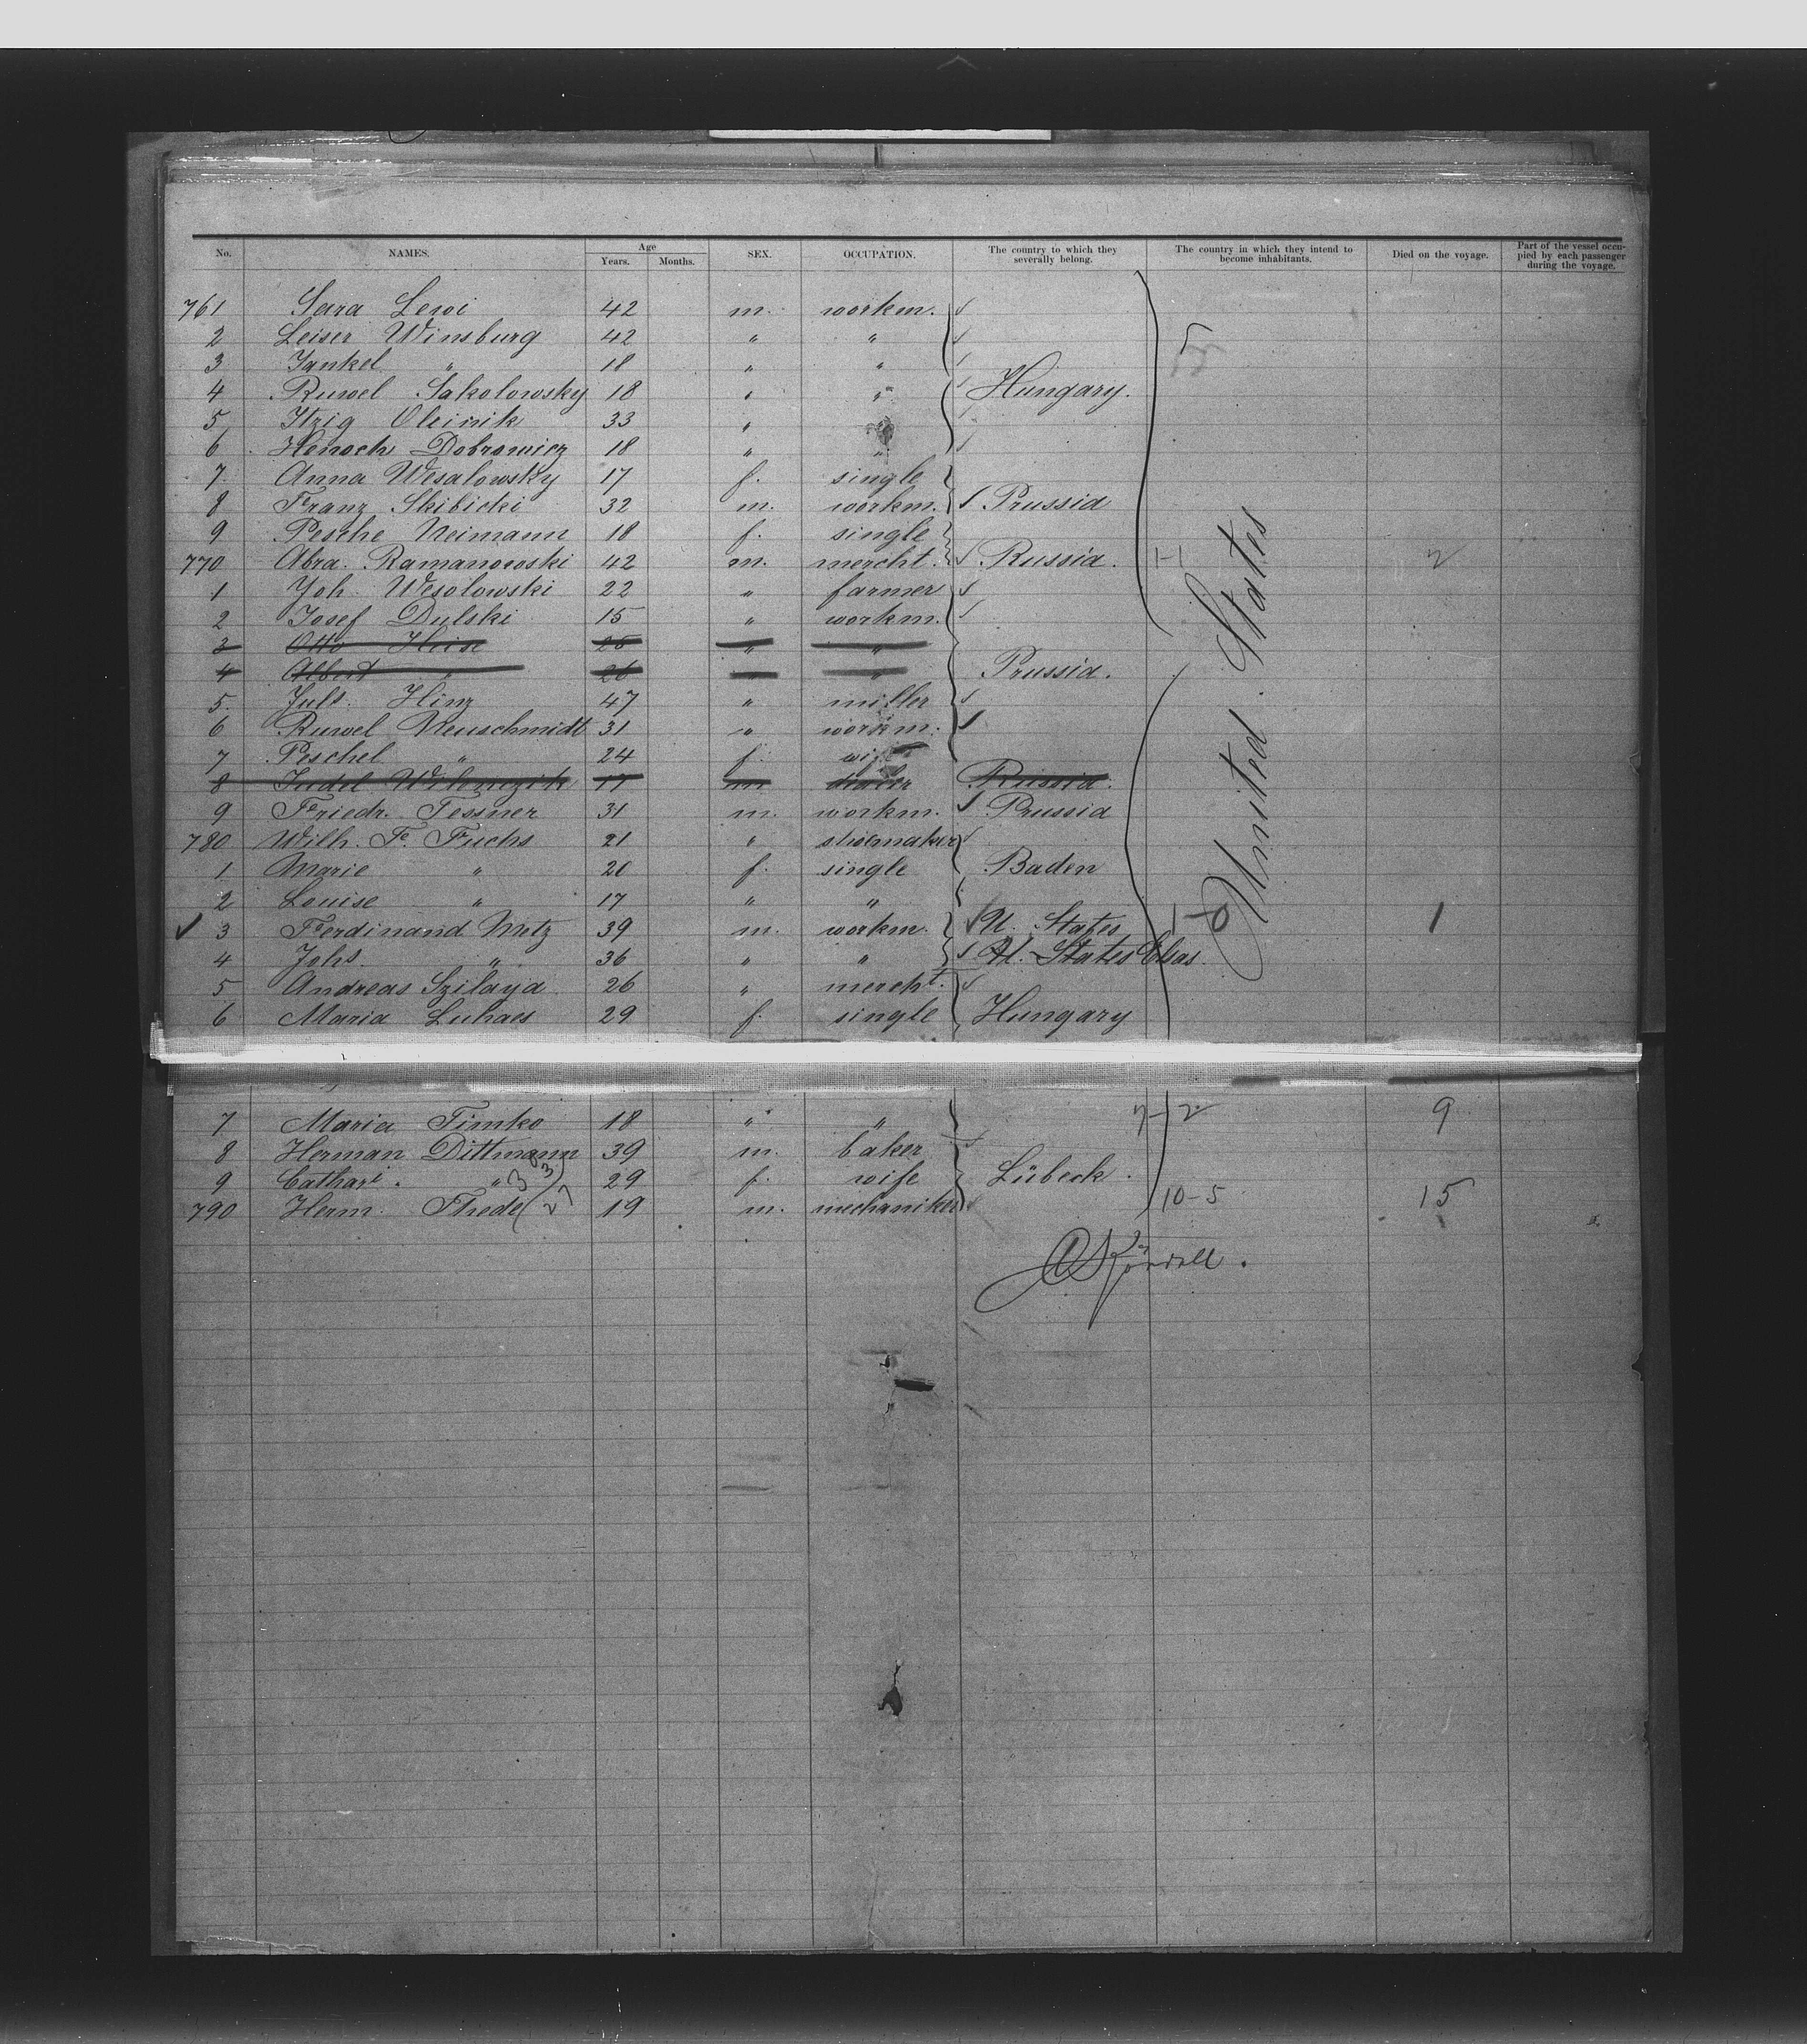 No. NAMES. Age Years. Months. SEX. OCCUPATION. The country to which they severally belong. The country in which they intend to become inhabitants. Died on the voyage. Part of the vessel occupied by each passenger during the voyage.
761 Sara Lewi 42 m. workm.
2 Leiser Winsburg 42 " "
3 Jankel " 18 " "
4 Ruwel Sakolowsky 18 " " Hungary.
5 Itzig Oleinik 33 " "
6 Henoch Dobrowicz 18 " "
7 Anna Wesalowsky 17 f. single
8 Franz Skibicki 32 m. workm. Prussia
9 Pesche Neimann 18 f. single
770 Abra. Ramanowski 42 m. mercht. Russia. 1-1 2
1 Joh. Wesolowski 22 " farmer
2 Josef Dulski 15 " workm.
3 Otto Heise " "
4 Albert " 26 " " Prussia.
5 Juls. Hinz 47 " miller
6 Ruwel Neuschmidt 31 " workm.
7 Peschel " 24 f. wife
8 Judel 17 m Russia.
9 Friedr. Tessner 31 m. workm. Prussia
780 Wilh. F. Fuchs 21 " shoemaker
1 Marie " 20 f. single Baden
2 Louise " 17 " "
3 Ferdinand Metz 39 m. workm. U. States 1-0 1
4 Johs " 36 " " U. States Elsas
5 Andreas Szilaya 26 " mercht.
6 Maria Luhaes 29 f. single Hungary
United States
7 Maria Timko 18 " " 7-2 9
8 Herman Dittmann 39 m. baker
9 Cathari. " 33 29 f. wife Lübeck.
790 Herm. Thede 27 19 m. mechaniker 10-5 15